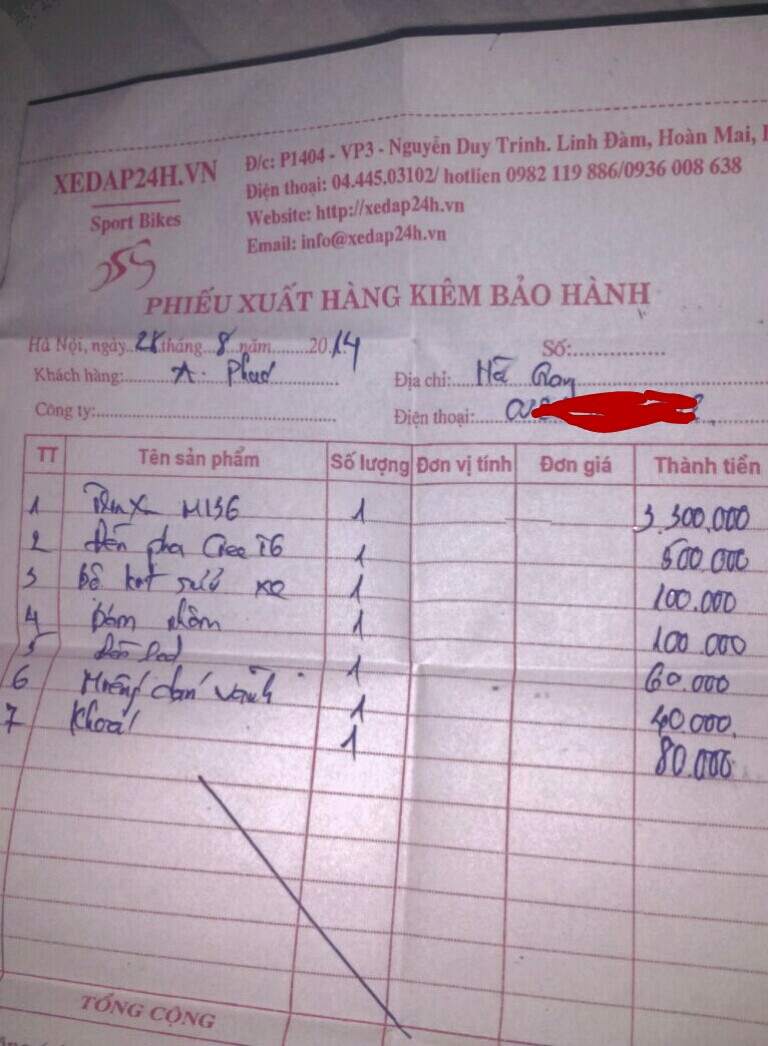 XEDAP24H.VN
Sport Bikes
Đ/c: P1404 - VP3 - Nguyễn Duy Trinh. Linh Đàm, Hoàn Mai,
Điện thoại: 04.445.03102/ hotlien 0982 119 886/0936 008 638
Website: http://xedap24h.vn
Email: info@xedap24h.vn
PHIẾU XUẤT HÀNG KIÊM BẢO HÀNH
Hà Nội, ngày 28 tháng 8 năm 2014 Số:
Khách hàng: A. Địa chỉ: Hà
Công ty: Điện thoại:
TT Tên sản phẩm Số lượng Đơn vị tính Đơn giá Thành tiền
1 M136 1 3.300.000
2 đèn pha Cree T6 1 500.000
3 Bộ 1 100.000
4 Bơm 1 100.000
5 đèn 1 60.000
6 Miếng dán vành 1 40.000
7 Khoá 1 80.000
TỔNG CỘNG